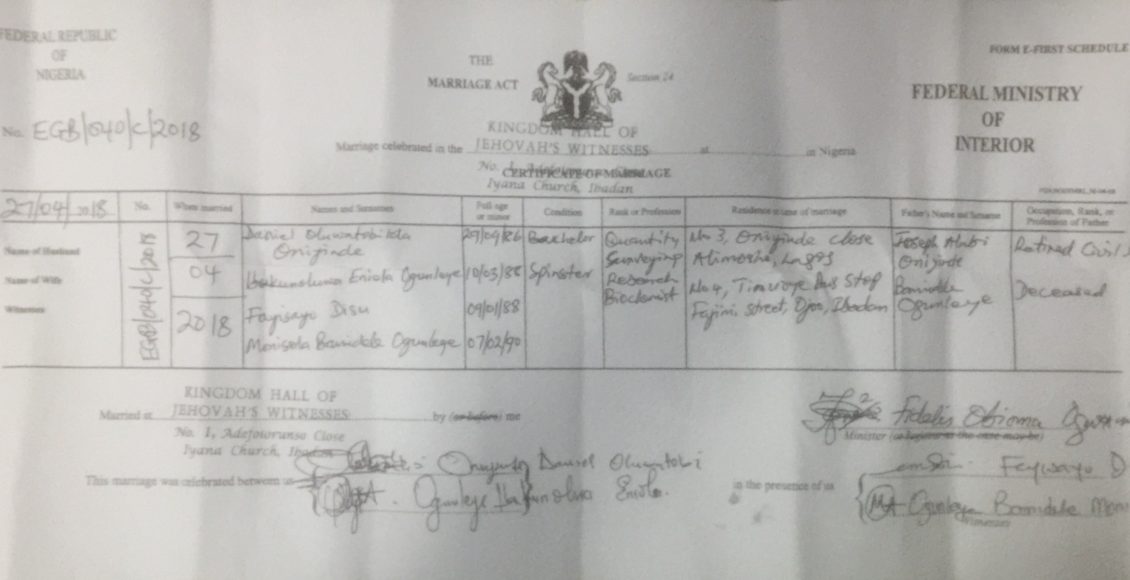 FEDERAL REPUBLIC
OF
NIGERIA
No. EGB/040/C/2018
THE
MARRIAGE ACT
Section 24
FORM E-FIRST SCHEDULE
FEDERAL MINISTRY
OF
INTERIOR
KINGDOM HALL OF
Marriage celebrated in the JEHOVAH'S WITNESSES at in Nigeria
No.
CERTIFICATE OF MARRIAGE
Iyana Church, Ibadan
27/04/2018 No. When married Names and Surnames Full age or minor Condition Rank or Profession Residence at time of marriage Father's Name and Surname Occupation, Rank, or Profession of Father
Name of Husband 27 Daniel Oluwatobiloba Onijinde 29/09/86 Bachelor Quantity Surveying No 3, Onijinde Close Alimosho, Lagos Joseph Alabi Onijinde Retired Civil
Name of Wife 04 Eniola Ogunleye 10/05/88 Spinster Research Biochemist No 4, Bus Stop Street, Ojoo, Ibadan Bamidele Ogunleye Deceased
Witnesses 2018 Disu 09/01/88
Monisola Bamidele Ogunleye 07/02/90
EGB/040/C/2018
KINGDOM HALL OF
Married at JEHOVAH'S WITNESSES by (or before) me
No. 1, Adefowrunso Close
Iyana Church, Ibadan
Fidelis Obioma
Minister (or registrar as the case may be)
This marriage was celebrated between us
Daniel Oluwatobi
Ogunleye Eniola
in the presence of us
D
Ogunleye Bamidele
Witnesses